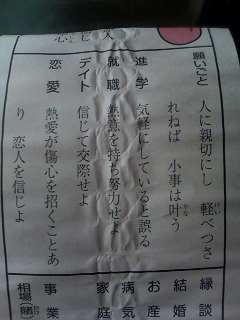 願いごと 人に親切にし 軽べつさ
れねば 小事は叶う
進学 気軽にしていると誤る
就職 熱意を持ち努力せよ
デイト 信じて交際せよ
恋愛 熱愛が傷心を招くことあ
り 恋人を信じよ
縁談
結婚
お産
病気
家庭
事業
相場(賭)